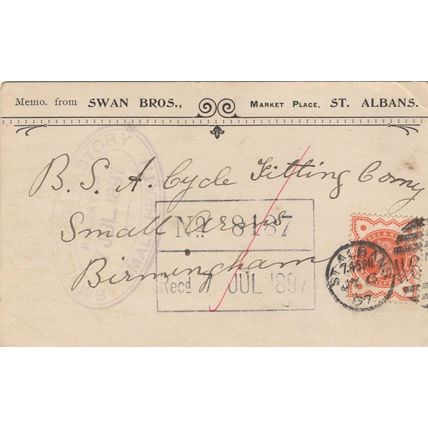 Memo. from SWAN BROS., MARKET PLACE, ST. ALBANS.
B. S. A. Cycle Fitting Comy
Small Arms
Birmingham
No. 8187
Recd JUL 1897
ST ALBANS
7.45 PM
97